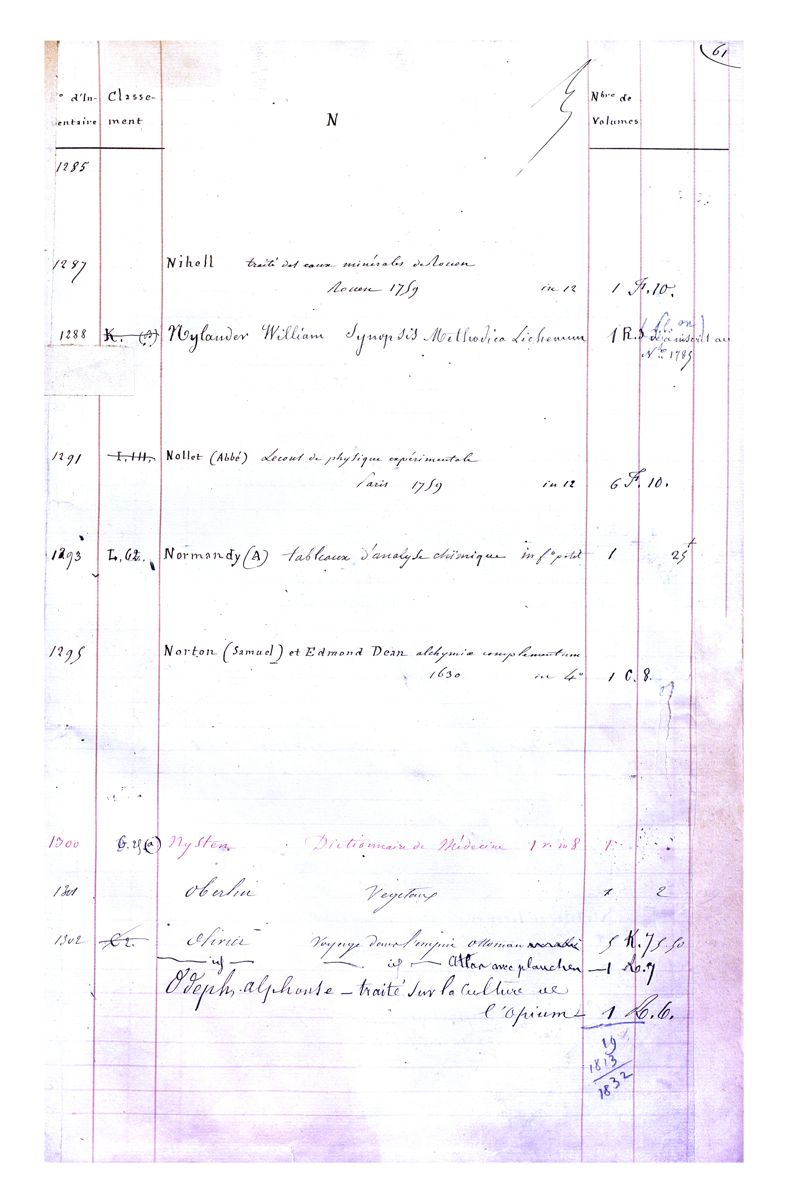 61
° d'In- Classe- Nbre de
entaire ment N Volumes
1285
1287 Nihell traité des eaux minérales de Rouen
Rouen 1759 in 12 1 F. 10.
1288 K. Nylander William Synopsis Methodica Lichenum 1 R.5 déja inscrit au
No 1785
1291 I.III. Nollet (Abbé) Lecons de physique expérimentale
Paris 1759 in 12 6 F. 10.
1293 L, 62. Normandy (A) tableaux d'analyse chimique in fo 1 25
1295 Norton (Samuel) et Edmond Dean alchymiæ complementum
1630 in 4o 1 C. 8.
1300 G. 25 (a) Nysten Dictionnaire de Médecine 1 v. in 8 1
1301 Oberlin Vegetaux 1 2
1302 Olivier Voyage dans l'empire ottoman 5 K. 7 5.50
id id Atlas avec planches — 1
Odeph. alphonse — traité sur la culture de
l'Opium 1 R. 6.
19
1813
1832